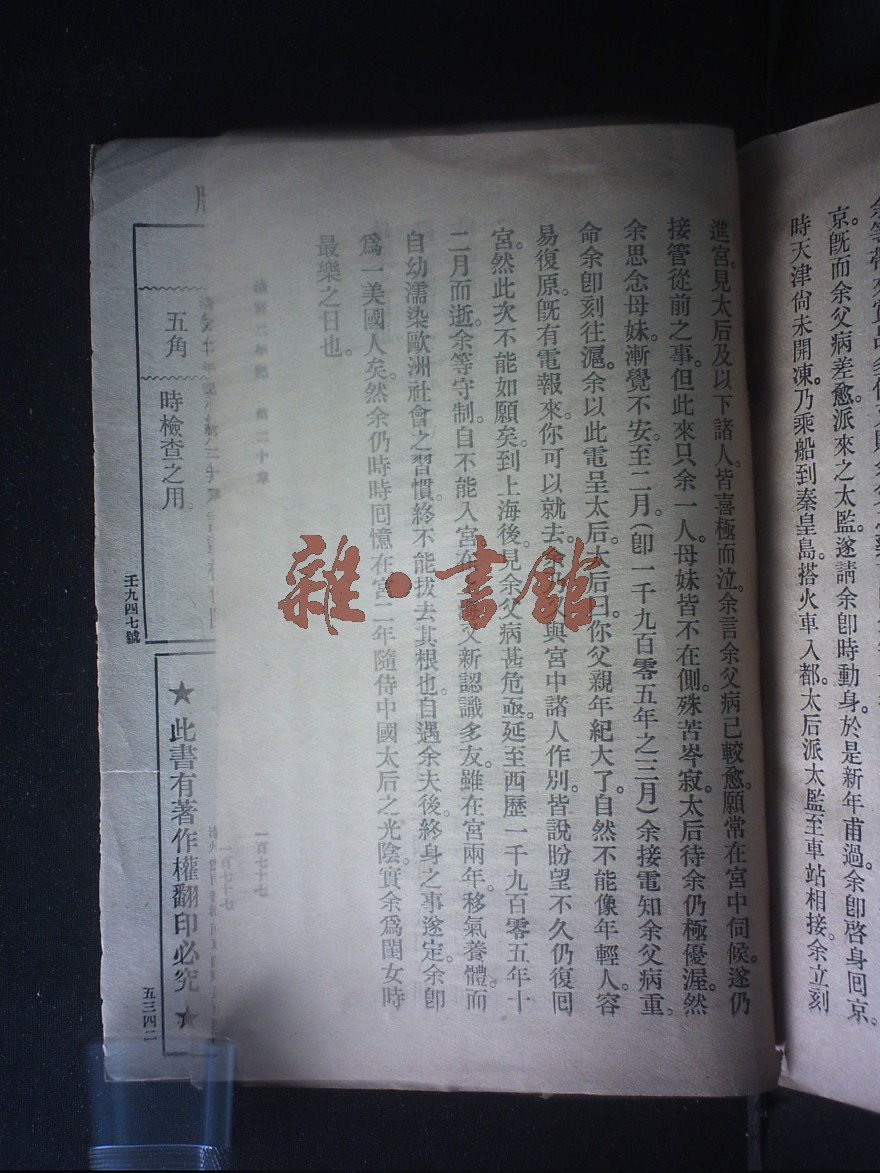 京。旣而余父病差愈。派來之太監。遂請余卽時動身。於是新年甫過。余卽啓身囘京。
時天津尙未開凍。乃乘船到秦皇島。搭火車入都。太后派太監至車站相接。余立刻
進宮。見太后及以下諸人。皆喜極而泣。余言余父病已較愈。願常在宮中伺候。遂仍
接管從前之事。但此來只余一人。母妹皆不在側。殊苦岑寂。太后待余仍極優渥。然
余思念母妹。漸覺不安。至二月。(卽一千九百零五年之三月)余接電知余父病重。
命余卽刻往滬。余以此電呈太后。太后曰。你父親年紀大了。自然不能像年輕人。容
易復原。旣有電報來。你可以就去。余與宮中諸人作別。皆說盼望不久仍復囘
宮。然此次不能如願矣。到上海後。見余父病甚危亟。延至西歷一千九百零五年十
二月而逝。余等守制。自不能入宮。在父新認識多友。雖在宮兩年。移氣養體。而
自幼濡染歐洲社會之習慣。終不能拔去其根也。自遇余夫後。終身之事遂定。余卽
爲一美國人矣。然余仍時時囘憶在宮二年隨侍中國太后之光陰。實余爲閨女時
最樂之日也。
清宮二年記 第二十章
一百七十七
雜·書館
五角
時檢查之用。
壬九四七號
★此書有著作權翻印必究★
五三四二